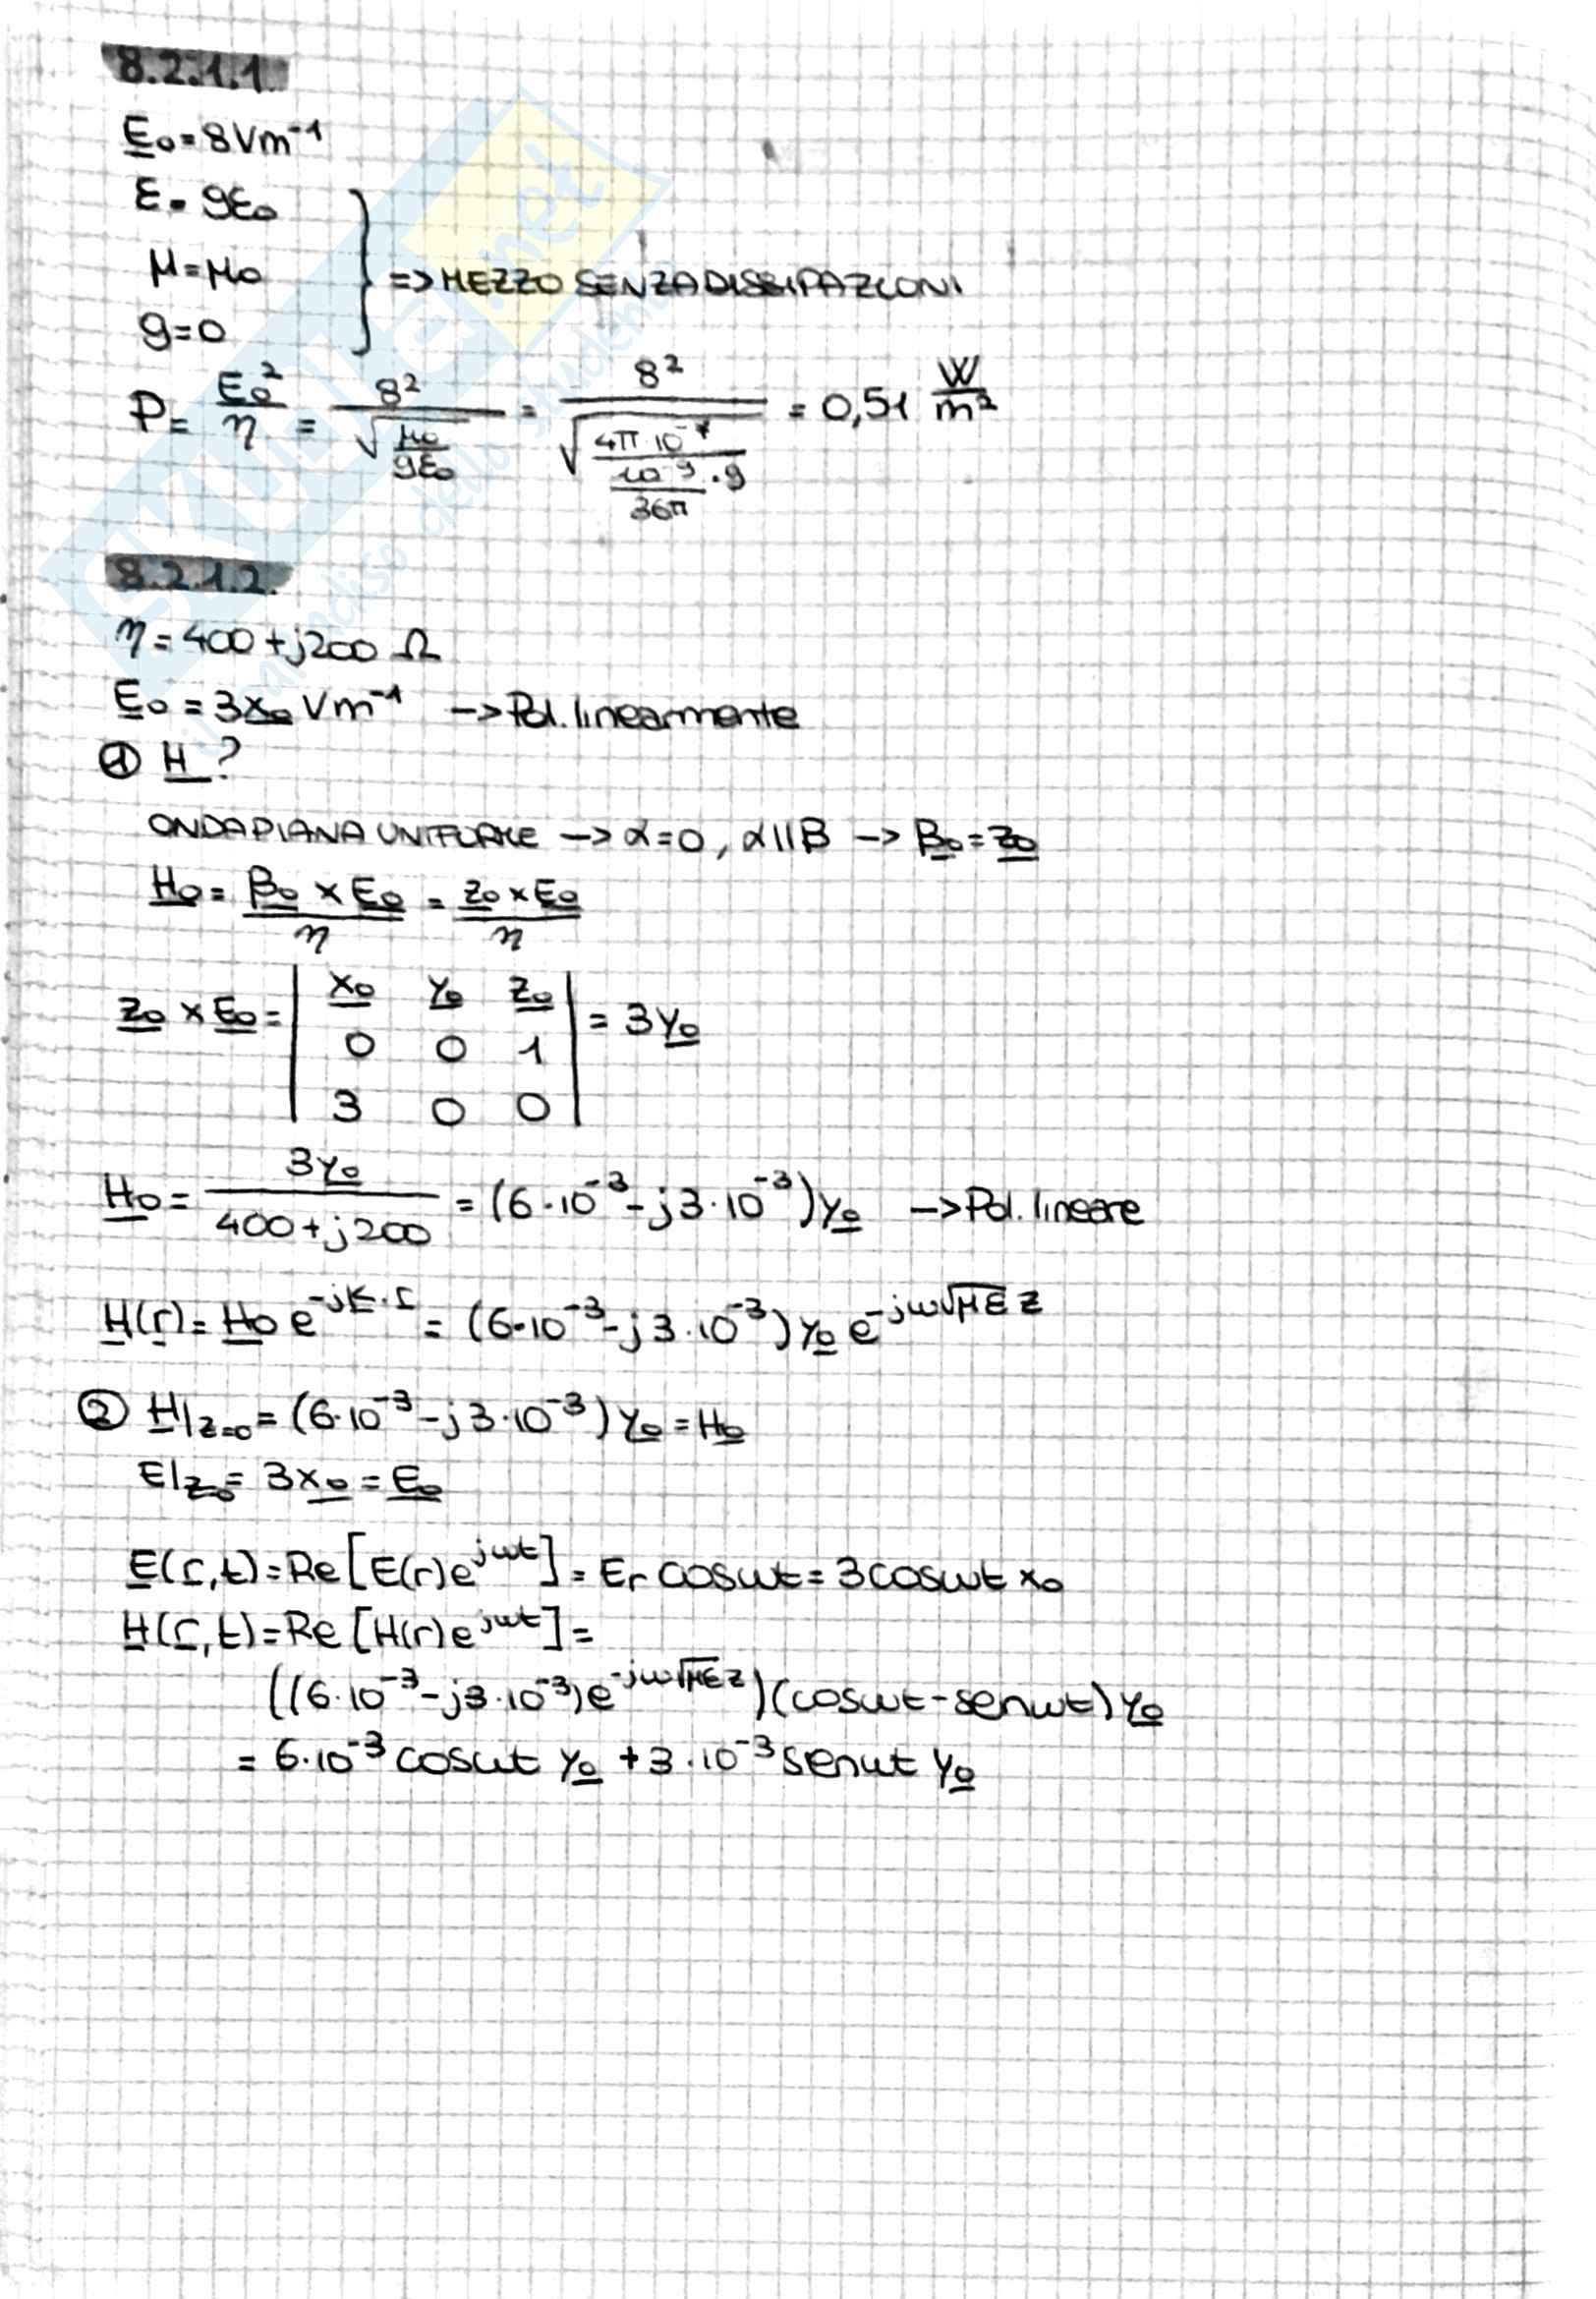 8.2.1.1
E̲₀ = 8Vm⁻¹
ε = 9ε₀
μ = μ₀
g = 0
} => MEZZO SENZA DISSIPAZIONI
P = E₀²/η = 8²/√(μ₀/9ε₀) = 8²/√(4π·10⁻⁷/(10⁻⁹/36π · 9)) = 0,51 W/m²
8.2.1.2.
η = 400 + j200 Ω
E̲₀ = 3x̲₀ Vm⁻¹ -> Pol. linearmente
① H̲ ?
ONDA PIANA UNIFORME -> α=0, α||β -> β̲₀ = z̲₀
H̲₀ = β̲₀ × E̲₀/η = z̲₀ × E̲₀/η
z̲₀ × E̲₀ = | x̲₀ y̲₀ z̲₀ | = 3y̲₀
0 0 1
3 0 0
H̲₀ = 3y̲₀/(400 + j200) = (6·10⁻³ - j3·10⁻³)y̲₀ -> Pol. lineare
H̲(r̲) = H̲₀ e^(-jk̲·r̲) = (6·10⁻³ - j3·10⁻³)y̲₀ e^(-jω√με z)
② H̲|z=0 = (6·10⁻³ - j3·10⁻³)y̲₀ = H̲₀
E|z=0 = 3x̲₀ = E̲₀
E̲(r̲,t) = Re[E(r)e^(jωt)] = Er cosωt = 3cosωt x₀
H̲(r̲,t) = Re[H(r)e^(jωt)] =
((6·10⁻³ - j3·10⁻³)e^(-jω√με z))(cosωt - senωt)y̲₀
= 6·10⁻³ cosωt y̲₀ + 3·10⁻³ senωt y̲₀